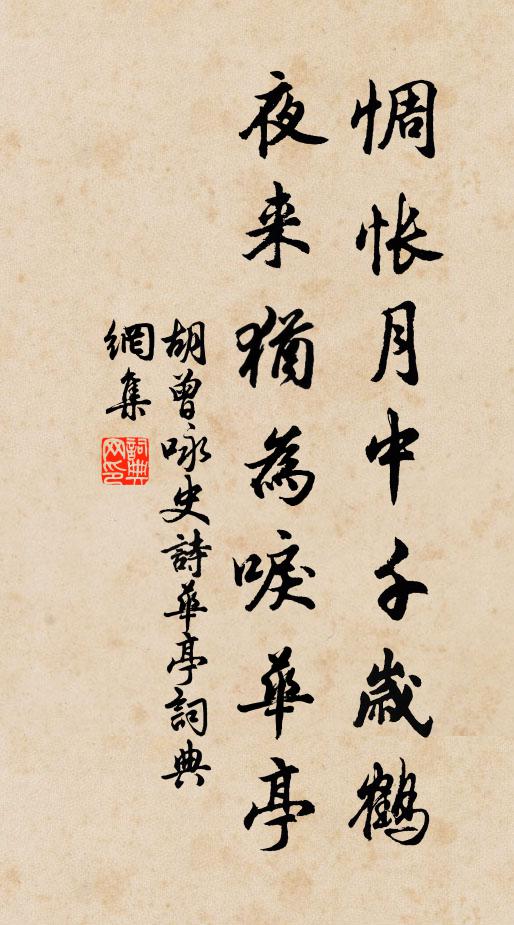 惆悵月中千歲鶴
夜来猶為唳華亭
胡曾咏史詩華亭詞典
網集
詞典
网印